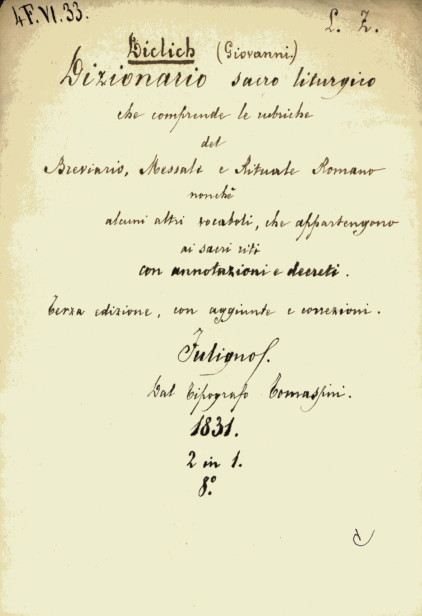 4F.VI.33.
L. Z.
Diclich (Giovanni.)
Dizionario sacro liturgico
che comprende le rubriche
del
Breviario, Messale e Rituale Romano
nonchè
alcuni altri vocaboli, che appartengono
ai sacri riti
con annotazioni e decreti.
Terza edizione, con aggiunte e correzioni.
Fuligno.
Dal Tipografo Tomassini.
1831.
2 in 1.
8.º